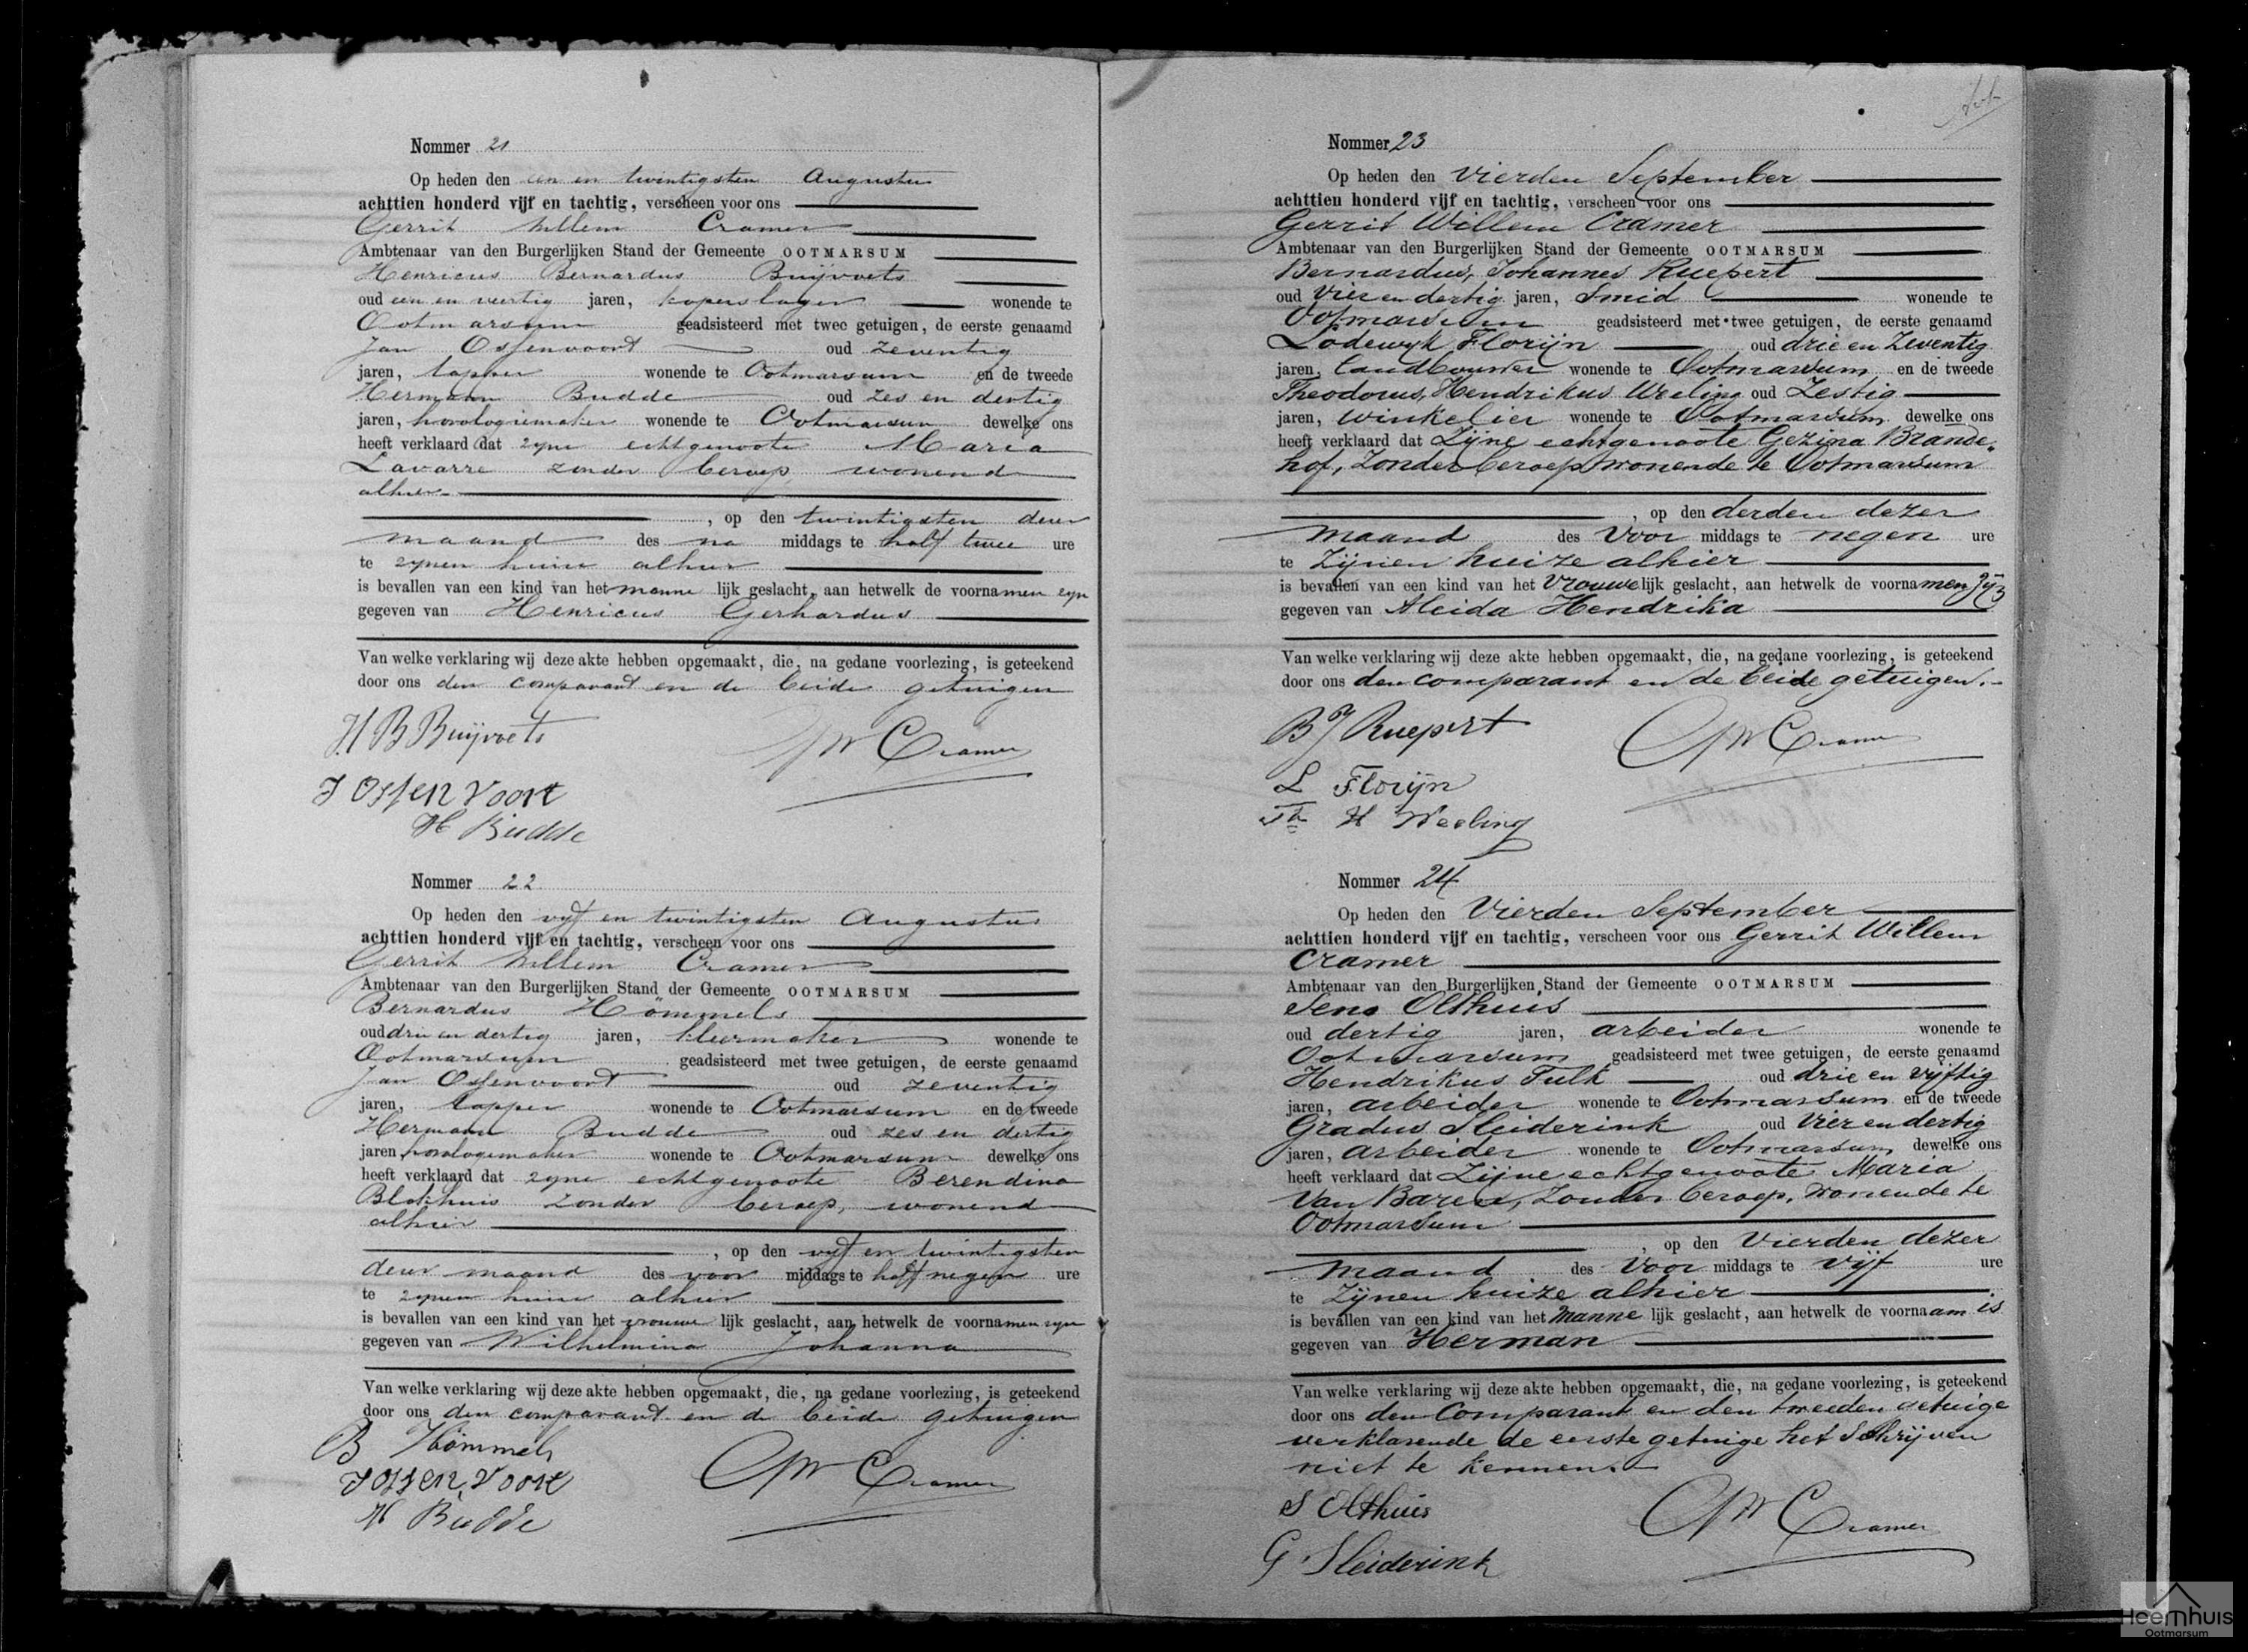 Nommer 21
Op heden den een en twintigsten Augustus
achttien honderd vijf en tachtig, verscheen voor ons
Gerrit Willem Cramer
Ambtenaar van den Burgerlijken Stand der Gemeente OOTMARSUM
Henricus Bernardus Buijvoets
oud een en veertig jaren, koperslager wonende te
Ootmarsum geadsisteerd met twee getuigen, de eerste genaamd
Jan Ossenvoort oud zeventig
jaren, tapper wonende te Ootmarsum en de tweede
Hermann Budde oud zes en dertig
jaren, horologiemaker wonende te Ootmarsum dewelke ons
heeft verklaard dat zyne echtgenoote Maria
Lavarre zonder beroep, wonend
alhier
, op den twintigsten dezer
maand des na middags te half twee ure
te zynen huize alhier
is bevallen van een kind van het manne lijk geslacht, aan hetwelk de voornamen zyn
gegeven van Henricus Gerhardus
Van welke verklaring wij deze akte hebben opgemaakt, die, na gedane voorlezing, is geteekend
door ons den comparant en de beide getuigen
H B Buijvoets
GW Cramer
J Ossenvoort
H Budde
Nommer 22
Op heden den vyf en twintigsten Augustus
achttien honderd vijf en tachtig, verscheen voor ons
Gerrit Willem Cramer
Ambtenaar van den Burgerlijken Stand der Gemeente OOTMARSUM
Bernardus Hömmels
oud drie en dertig jaren, kleermaker wonende te
Ootmarsum geadsisteerd met twee getuigen, de eerste genaamd
Jan Ossenvoort oud zeventig
jaren, tapper wonende te Ootmarsum en de tweede
Hermann Budde oud zes en dertig
jaren horologemaker wonende te Ootmarsum dewelke ons
heeft verklaard dat zyne echtgenoote Berendina
Blokhuis zonder beroep, wonend
alhier
, op den vyf en twintigsten
dezer maand des voor middags te half negen ure
te zynen huize alhier
is bevallen van een kind van het vrouwe lijk geslacht, aan hetwelk de voornamen zyn
gegeven van Wilhelmina Johanna
Van welke verklaring wij deze akte hebben opgemaakt, die, na gedane voorlezing, is geteekend
door ons den comparant en de beide getuigen
B Hömmels
J Ossenvoort
GW Cramer
H Budde
Nommer 23
Op heden den Vierden September
achttien honderd vijf en tachtig, verscheen voor ons
Gerrit Willem Cramer
Ambtenaar van den Burgerlijken Stand der Gemeente OOTMARSUM
Bernardus, Johannes Ruepert
oud Vier en dertig jaren, Smid wonende te
Ootmarsum geadsisteerd met twee getuigen, de eerste genaamd
Lodewyk Florijn oud drie en Zeventig
jaren, Landbouwer wonende te Ootmarsum en de tweede
Theodorus, Hendrikus Weeling oud Zestig
jaren, winkelier wonende te Ootmarsum dewelke ons
heeft verklaard dat Zijne echtgenoote Gezina Brande„
hof, Zonder beroep wonende te Ootmarsum
, op den derden dezer
maand des Voor middags te negen ure
te Zijnen huize alhier
is bevallen van een kind van het Vrouwe lijk geslacht, aan hetwelk de voornamen zijn
gegeven van Aleida Hendrika
Van welke verklaring wij deze akte hebben opgemaakt, die, na gedane voorlezing, is geteekend
door ons den comparant en de beide getuigen.
B J Ruepert
GW Cramer
L Florijn
Th H Weeling
Nommer 24
Op heden den Vierden September
achttien honderd vijf en tachtig, verscheen voor ons Gerrit Willem
Cramer
Ambtenaar van den Burgerlijken Stand der Gemeente OOTMARSUM
Seno Olthuis
oud dertig jaren, arbeider wonende te
Ootmarsum geadsisteerd met twee getuigen, de eerste genaamd
Hendrikus Tulk oud drie en vijftig
jaren, arbeider wonende te Ootmarsum en de tweede
Gradus Sleiderink oud Vier en dertig
jaren, arbeider wonende te Ootmarsum dewelke ons
heeft verklaard dat Zijne echtgenoote Maria
Van Baren, Zonder beroep, wonende te
Ootmarsum
, op den Vierden dezer
maand des Voor middags te vijf ure
te Zijnen huize alhier
is bevallen van een kind van het Manne lijk geslacht, aan hetwelk de voornaam is
gegeven van Herman
Van welke verklaring wij deze akte hebben opgemaakt, die, na gedane voorlezing, is geteekend
door ons den Comparant en den tweeden getuige
verklarende de eerste getuige het Schrijven
niet te kennen.
S Olthuis
GW Cramer
G Sleiderink
Heemhuis
Ootmarsum